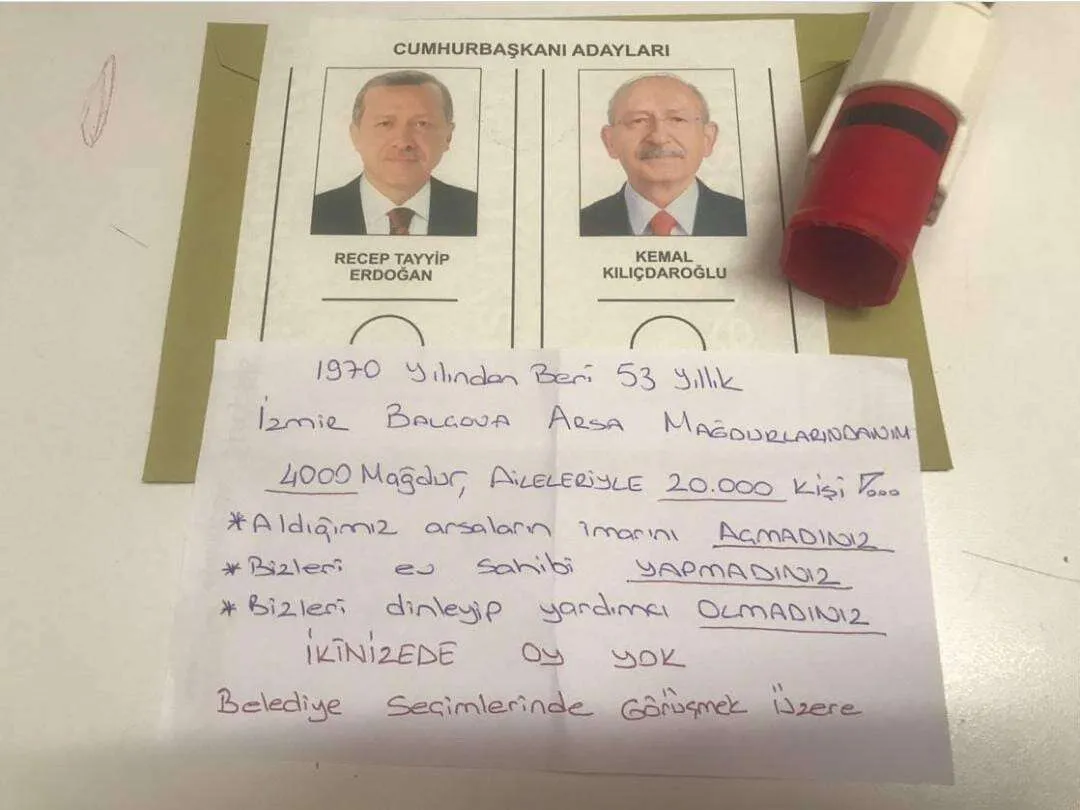 CUMHURBAŞKANI ADAYLARI
RECEP TAYYİP
ERDOĞAN
KEMAL
KILIÇDAROĞLU
1970 Yılından Beri 53 yıllık
İzmir BALÇOVA ARSA MAĞDURLARINDANIM
4000 Mağdur, AİLELERİYLE 20.000 kişi
*Aldığımız arsaların imarını AÇMADINIZ
*Bizleri ev sahibi YAPMADINIZ
*Bizleri dinleyip yardımcı OLMADINIZ
İKİNİZEDE OY YOK
Belediye Seçimlerinde Görüşmek Üzere